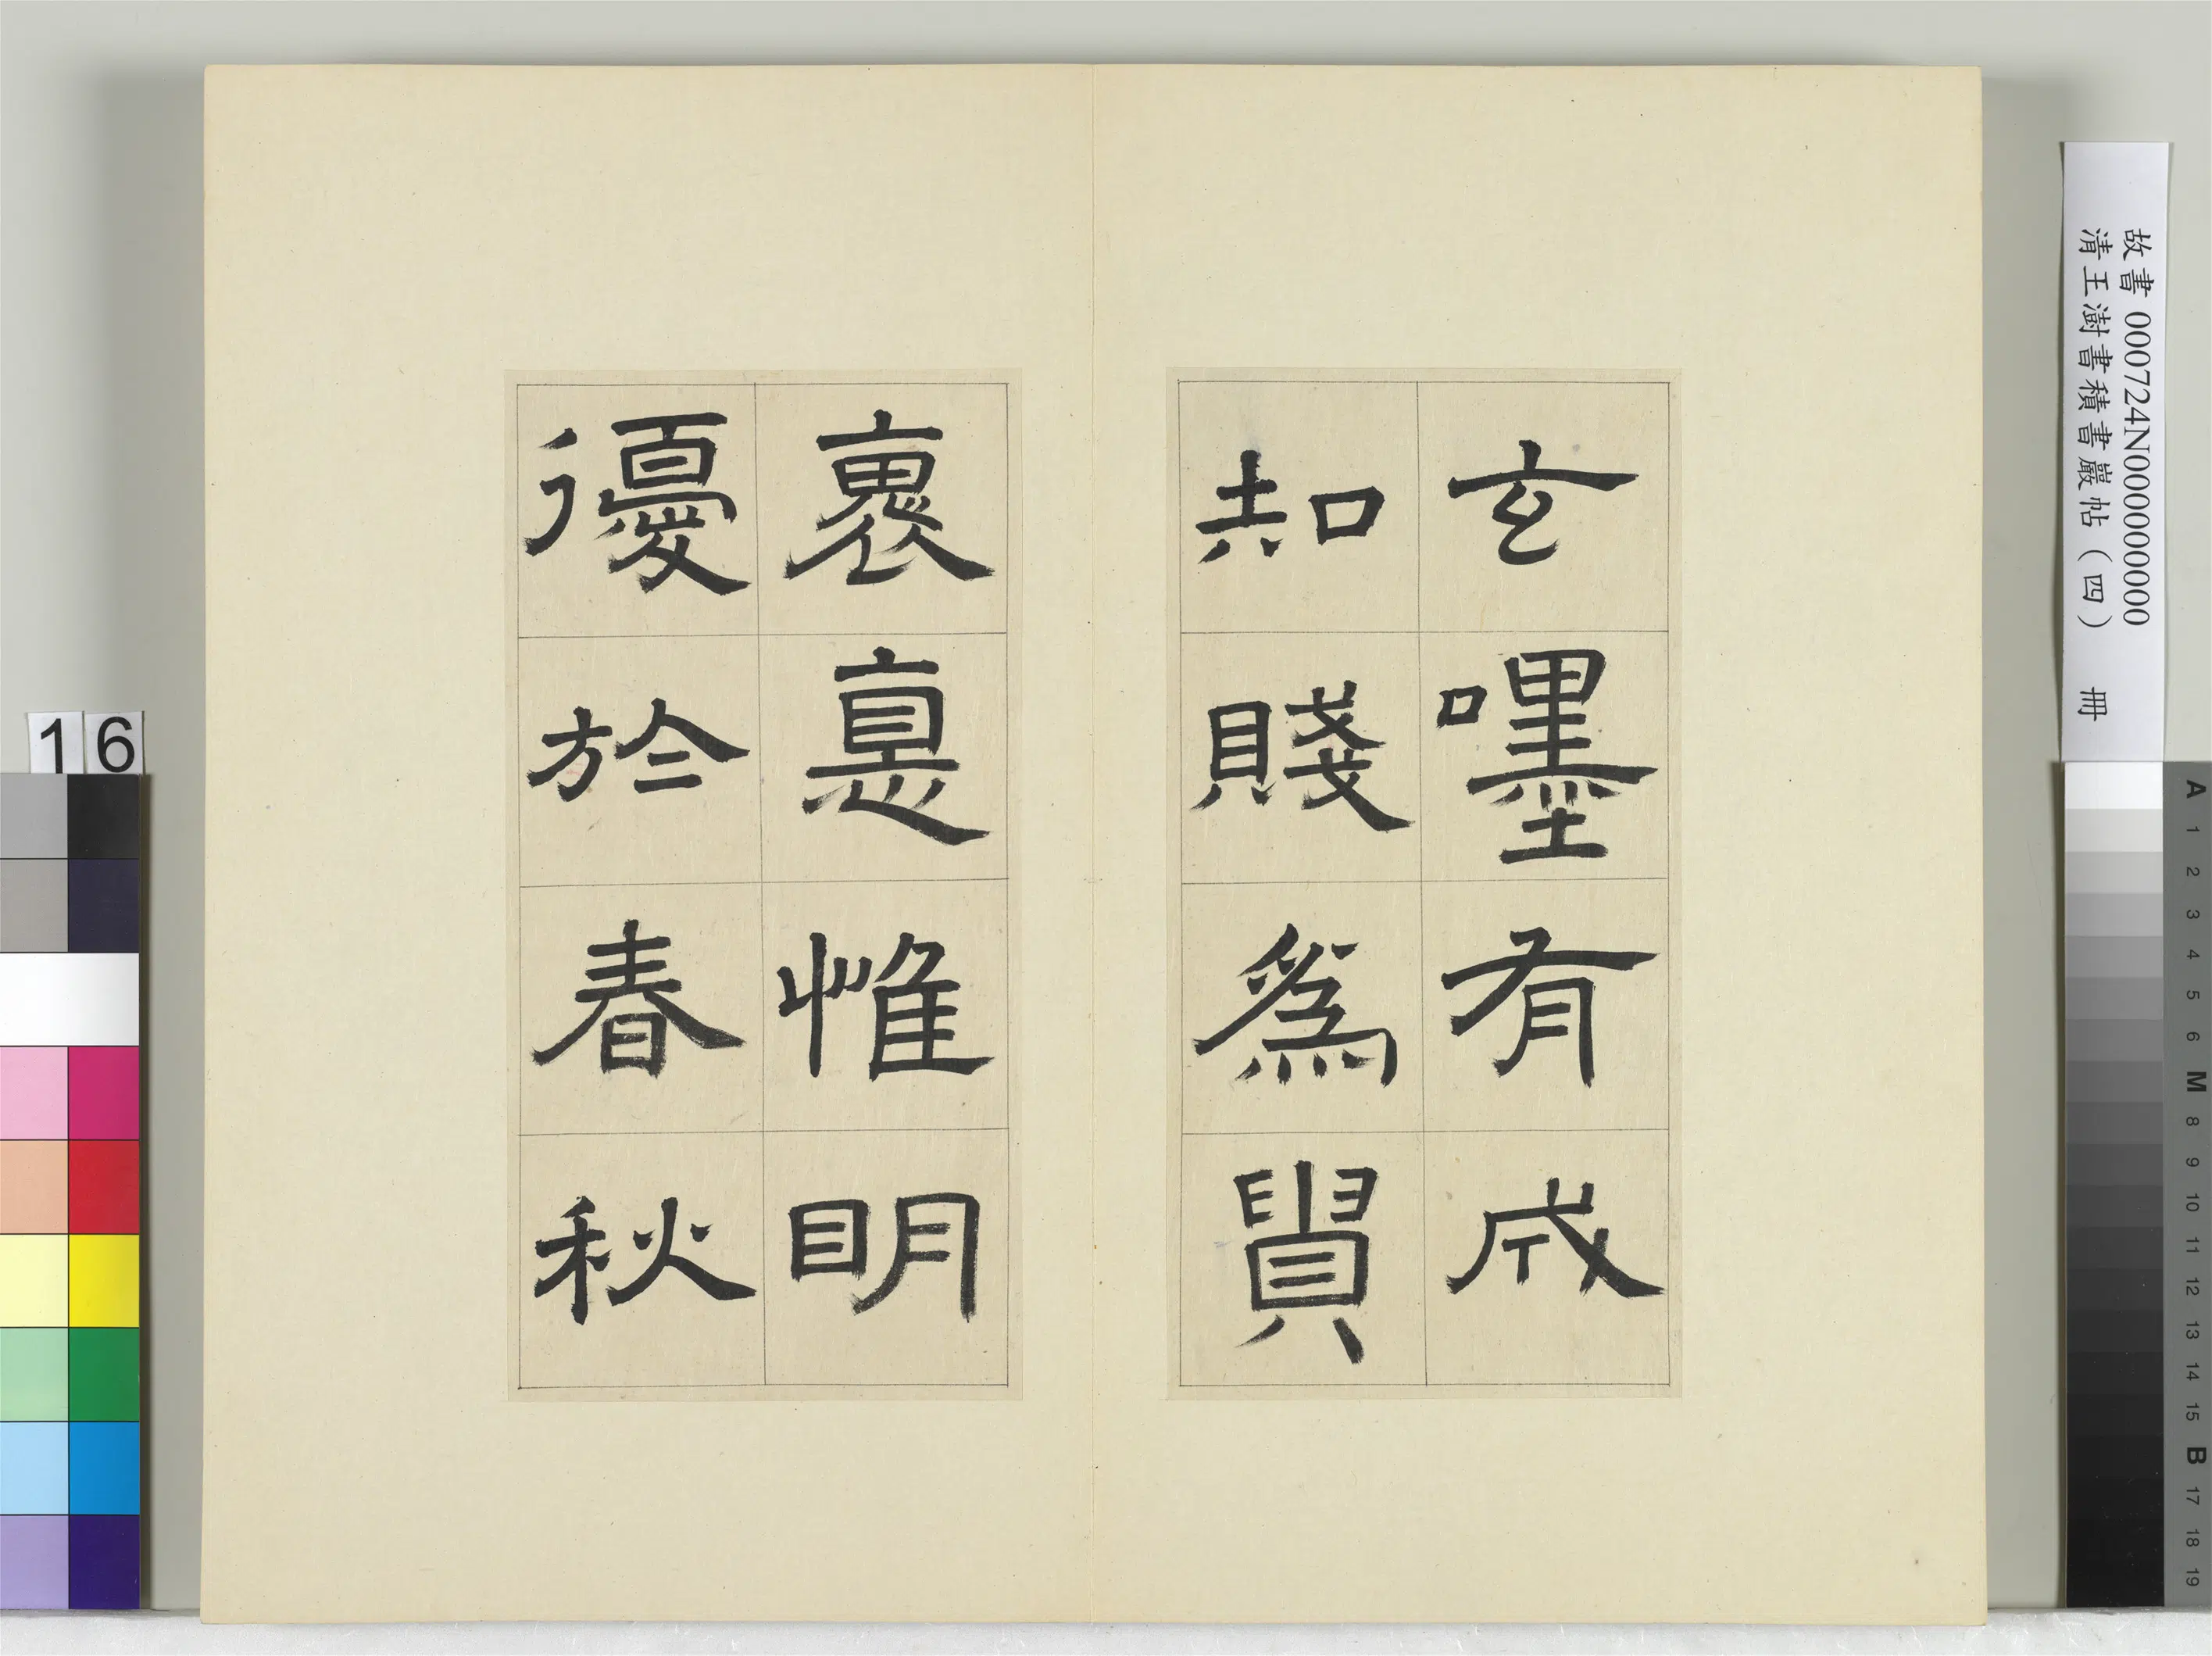 玄嚜有成
知賤爲貴
褱惪惟明
優於春秋
故書 000724N000000000
清王澍書積書巖帖（四）　冊
16
A 1 2 3 4 5 6 M 8 9 10 11 12 13 14 15 B 17 18 19